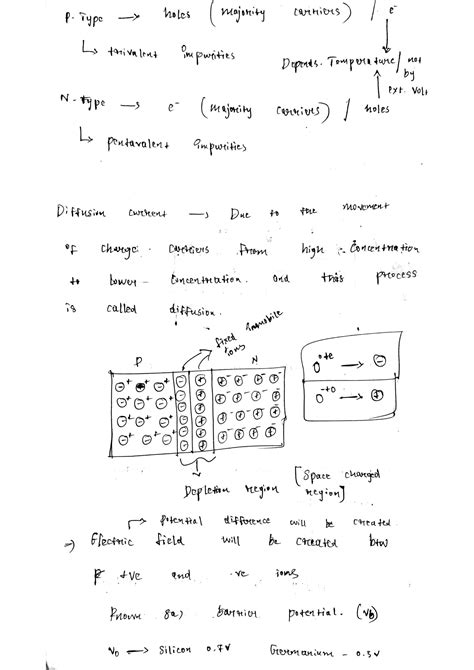 P. Type → holes (majority carriers) / e⁻
↳ trivalent impurities
Depends. Temperature / not by ext. Volt
N-type → e⁻ (majority carriers) / holes
↳ pentavalent impurities
Diffusion current → Due to the movement
of charge carriers from high concentration
to lower concentration. and this process
is called diffusion.
fixed immobile
ions
P N
0 +e → ⊖
0 → ⊕
Depletion region [Space charged
region]
→ potential difference will be created
→ Electric field will be created btw
+ve and -ve ions
barrier potential. (Vb)
→ Silicon 0.7V Germanium -